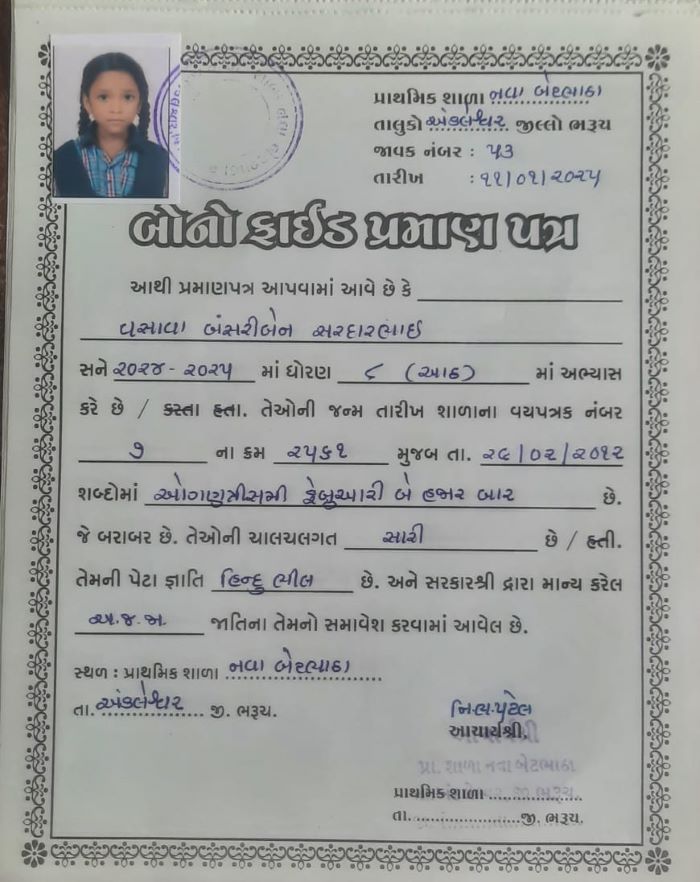 પ્રાથમિક શાળા નવા બેટભાઠા
તાલુકો અંકલેશ્વર જીલ્લો ભરૂચ
જાવક નંબર : ૫૩
તારીખ : ૧૧/૦૧/૨૦૨૫
બોનોફાઈડ પ્રમાણ પત્ર
આથી પ્રમાણપત્ર આપવામાં આવે છે કે
વસાવા બંસરીબેન સરદારભાઈ
સને ૨૦૨૪-૨૦૨૫ માં ધોરણ ૮ (આઠ) માં અભ્યાસ
કરે છે / કરતા હતા. તેઓની જન્મ તારીખ શાળાના વયપત્રક નંબર
૭ ના ક્રમ ૨૫૬૧ મુજબ તા. ૨૯/૦૨/૨૦૧૨
શબ્દોમાં ઓગણત્રીસમી ફેબ્રુઆરી બે હજાર બાર છે.
જે બરાબર છે. તેઓની ચાલચલગત સારી છે / હતી.
તેમની પેટા જ્ઞાતિ હિન્દુ ભીલ છે. અને સરકારશ્રી દ્રારા માન્ય કરેલ
અ.જ.જા. જાતિના તેમનો સમાવેશ કરવામાં આવેલ છે.
સ્થળ : પ્રાથમિક શાળા નવા બેટભાઠા
તા. અંકલેશ્વર જી. ભરૂચ.
આચાર્યશ્રી,
પ્રા. શાળા નવા બેટભાઠા
પ્રાથમિક શાળા
તા. જી. ભરૂચ.